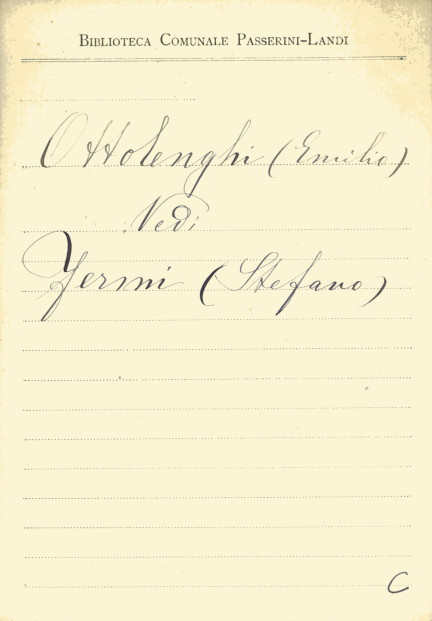 BIBLIOTECA COMUNALE PASSERINI-LANDI
Ottolenghi (Emilio)
Vedi
Fermi (Stefano)
C